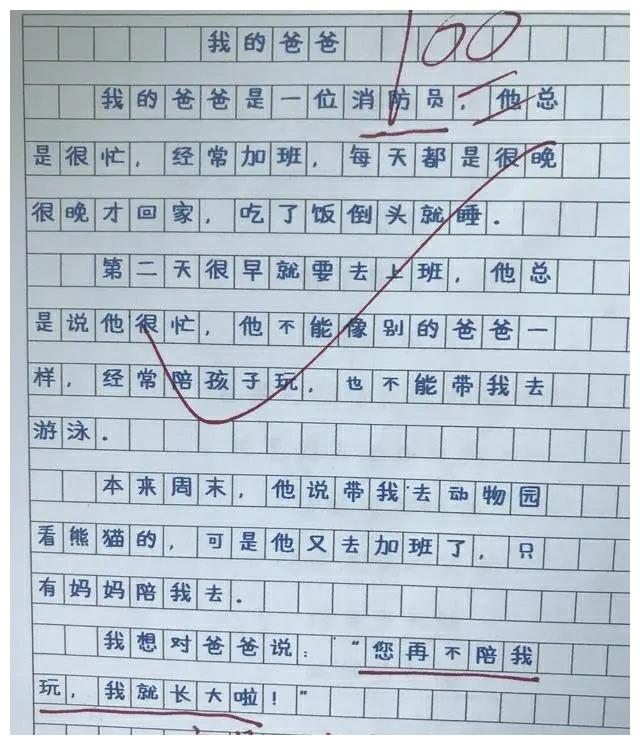 我的爸爸
100
我的爸爸是一位消防员，他总
是很忙，经常加班，每天都是很晚
很晚才回家，吃了饭倒头就睡.
第二天很早就要去上班，他总
是说他很忙，他不能像别的爸爸一
样，经常陪孩子玩，也不能带我去
游泳.
本来周末，他说带我去动物园
看熊猫的，可是他又去加班了，只
有妈妈陪我去.
我想对爸爸说："您再不陪我
玩，我就长大啦！"